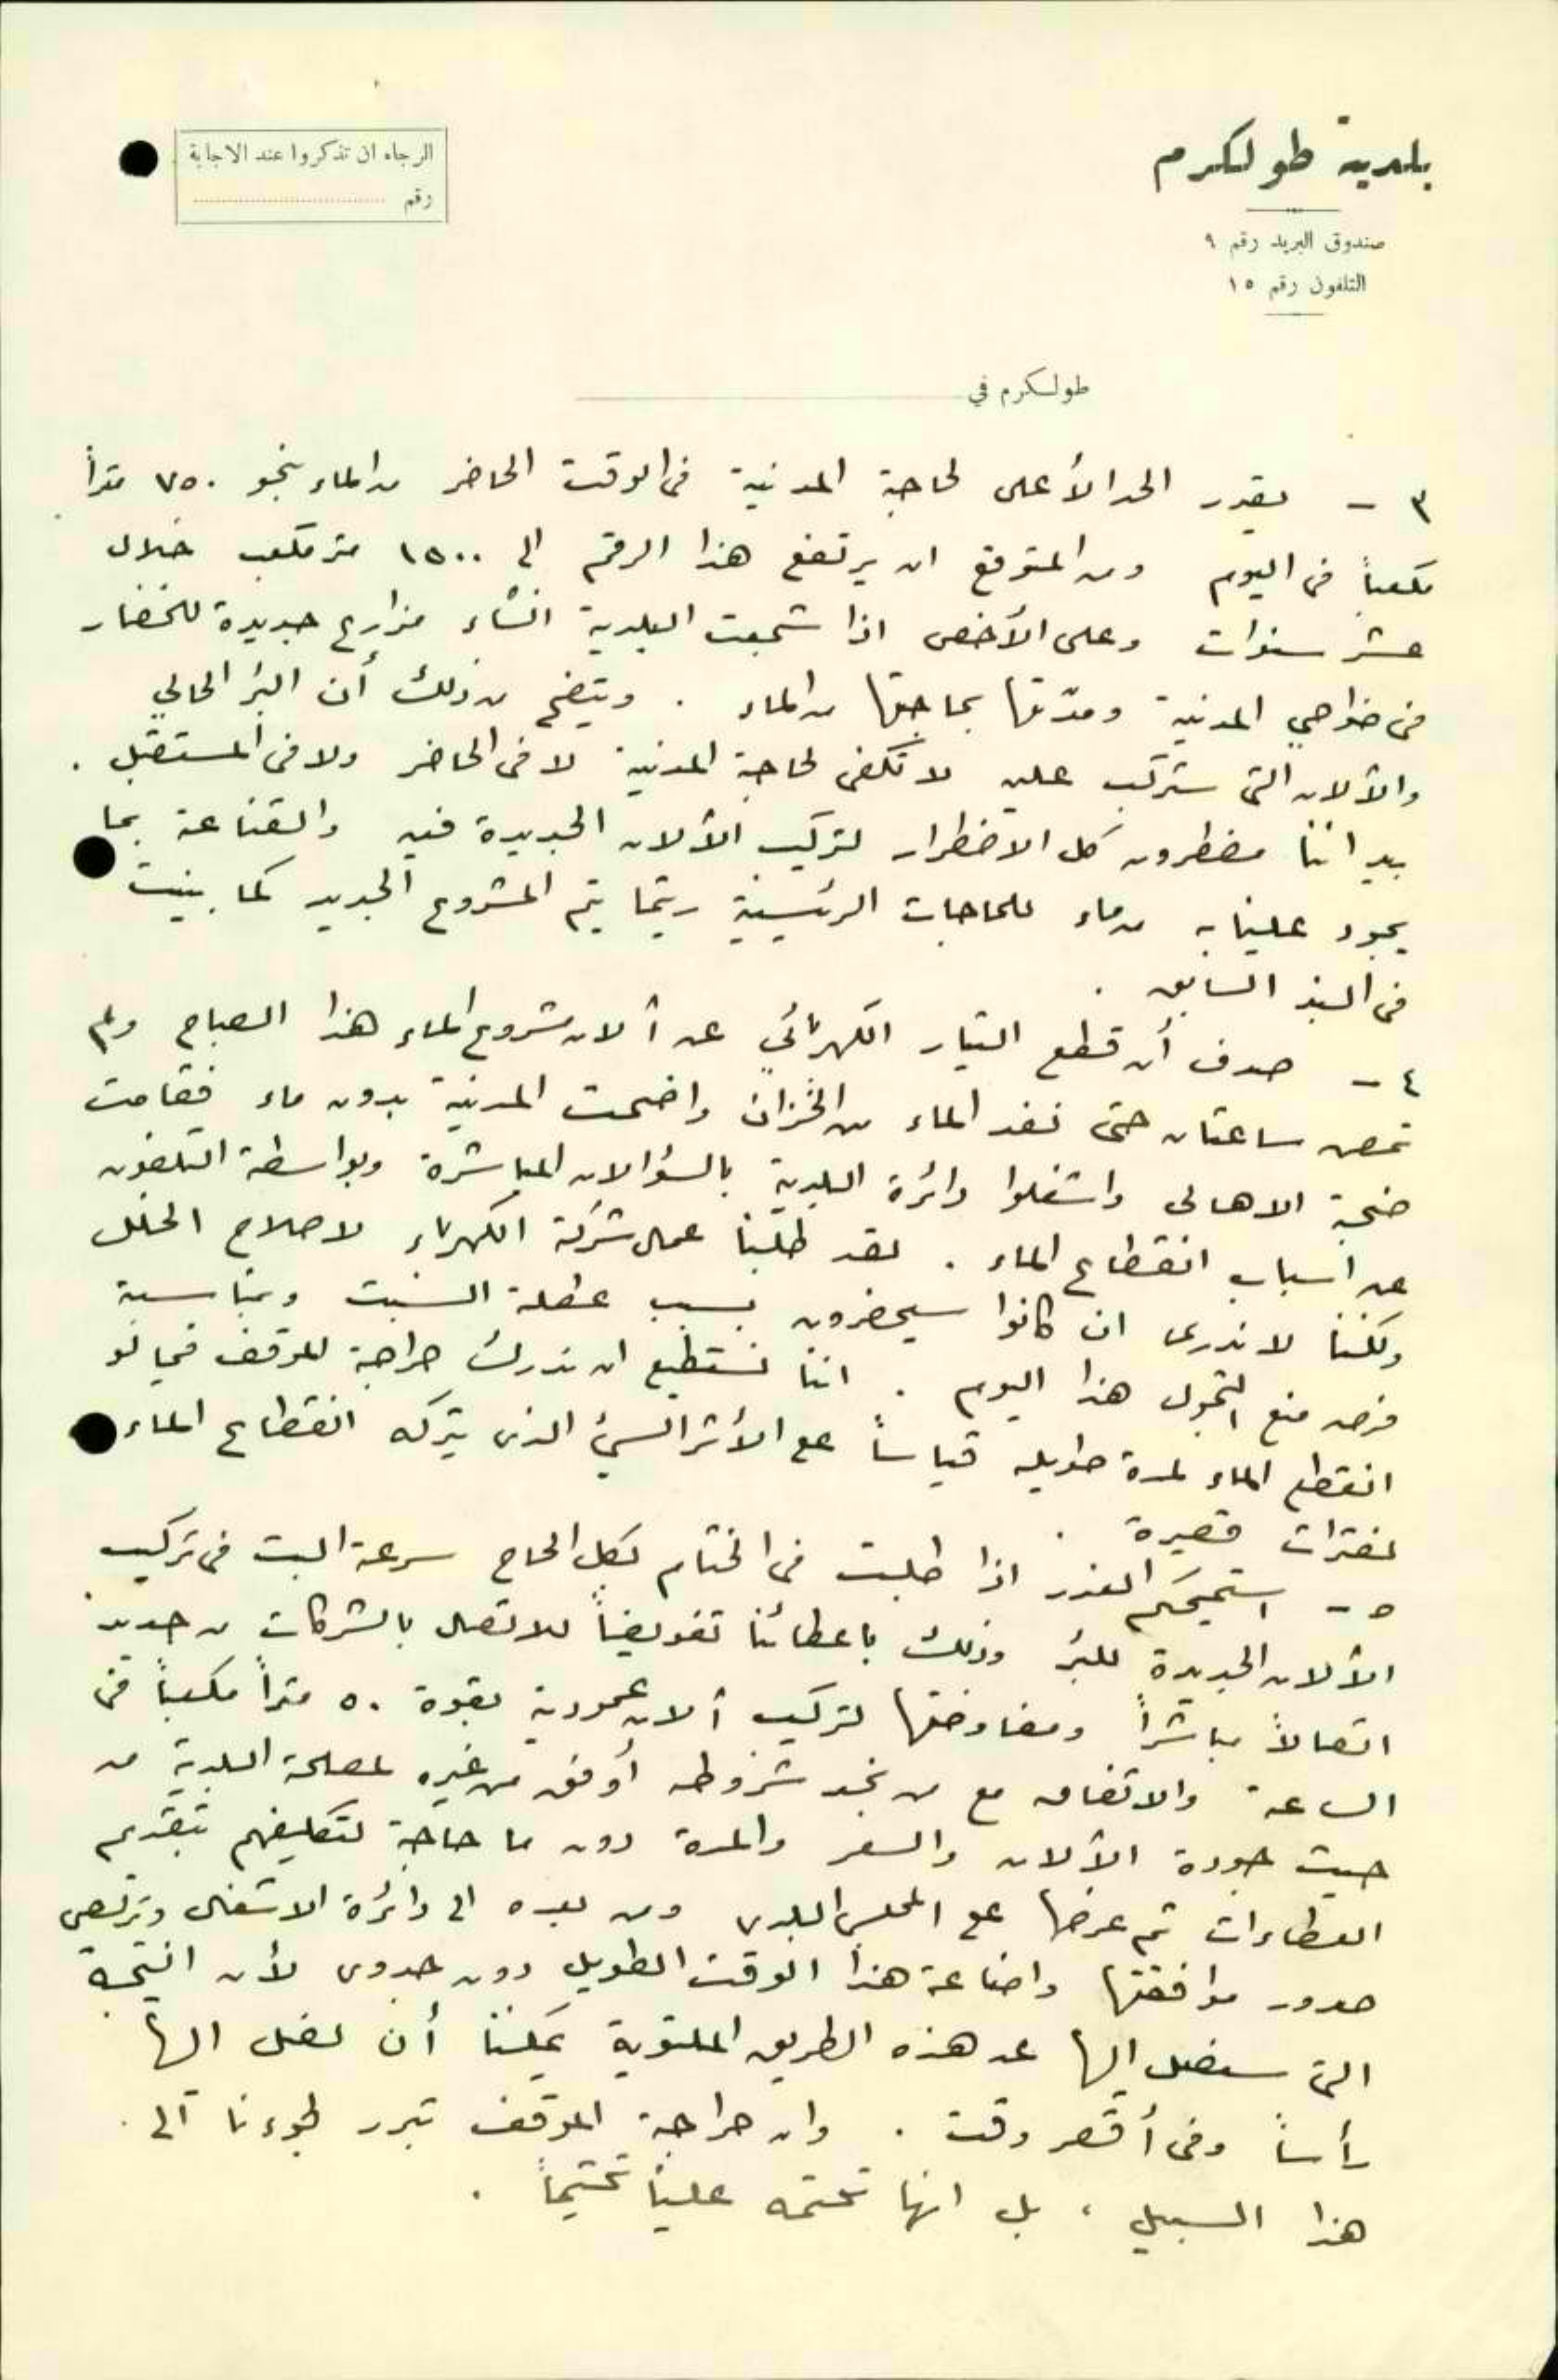 بلدية طولكرم
صندوق البريد رقم ٩
التلفون رقم ١٥
الرجاء ان تذكروا عند الاجابة
رقم
طولكرم في
٣ - يقدر الحد الأعلى لحاجة المدينة في الوقت الحاضر من الماء بنحو ٧٥٠ متراً
مكعباً في اليوم ومن المتوقع ان يرتفع هذا الرقم الى ١٥٠٠ متر مكعب خلال
عشر سنوات وعلى الأخص اذا شجعت البلدية انشاء مزارع جديدة للخضار
في ضواحي المدينة ومدّتها بحاجتها من الماء . ويتضح من ذلك أن البئر الحالي
والآلات التي ستركب عليه لا تكفي لحاجة المدينة لا في الحاضر ولا في المستقبل .
بيد اننا مضطرون كل الاضطرار لتركيب الآلات الجديدة فيه والقناعة بما
يجود علينا به من ماء للحاجات الرئيسية ريثما يتم المشروع الجديد كما بينت
في البند السابق .
٤ - صدف أن قطع التيار الكهربائي عن آلات مشروع الماء هذا الصباح ولم
تمض ساعتان حتى نفد الماء من الخزان واضحت المدينة بدون ماء فقامت
ضجة الاهالي واشغلوا دائرة البلدية بالسؤالات المباشرة وبواسطة التلفون
عن اسباب انقطاع الماء . لقد طلبنا عمال شركة الكهرباء لاصلاح الخلل
ولكننا لا ندري ان كانوا سيحضرون بسبب عطلة السبت وبمناسبة
فرض منع التجول هذا اليوم . اننا نستطيع ان ندرك حراجة الموقف فيما لو
انقطع الماء لمدة طويلة قياساً على الأثر السيئ الذي يتركه انقطاع الماء
لفترات قصيرة .
٥ - استميحكم العذر اذا طلبت في الختام بكل الحاح سرعة البت في تركيب
الآلات الجديدة للبئر وذلك باعطائنا تفويضاً للاتصال بالشركات من جديد
اتصالاً مباشراً ومفاوضتها لتركيب آلات عمودية بقوة ٥٠ متراً مكعباً في
الساعة والاتفاق مع من نجد شروطه أوفق من غيره لمصلحة البلدية من
حيث جودة الآلات والسعر والمدة دون ما حاجة لتكليفهم بتقديم
العطاءات ثم عرضها على المجلس البلدي ومن بعده الى دائرة الاشغال وتربص
صدور موافقتها واضاعة هذا الوقت الطويل دون جدوى لأن النتيجة
التي سنصل اليها عن هذه الطريق الملتوية يمكننا أن نصل اليها
رأساً وفي أقصر وقت . وان حراجة الموقف تبرر لجوءنا الى
هذا السبيل ، بل انها تحتمه علينا تحتيماً .